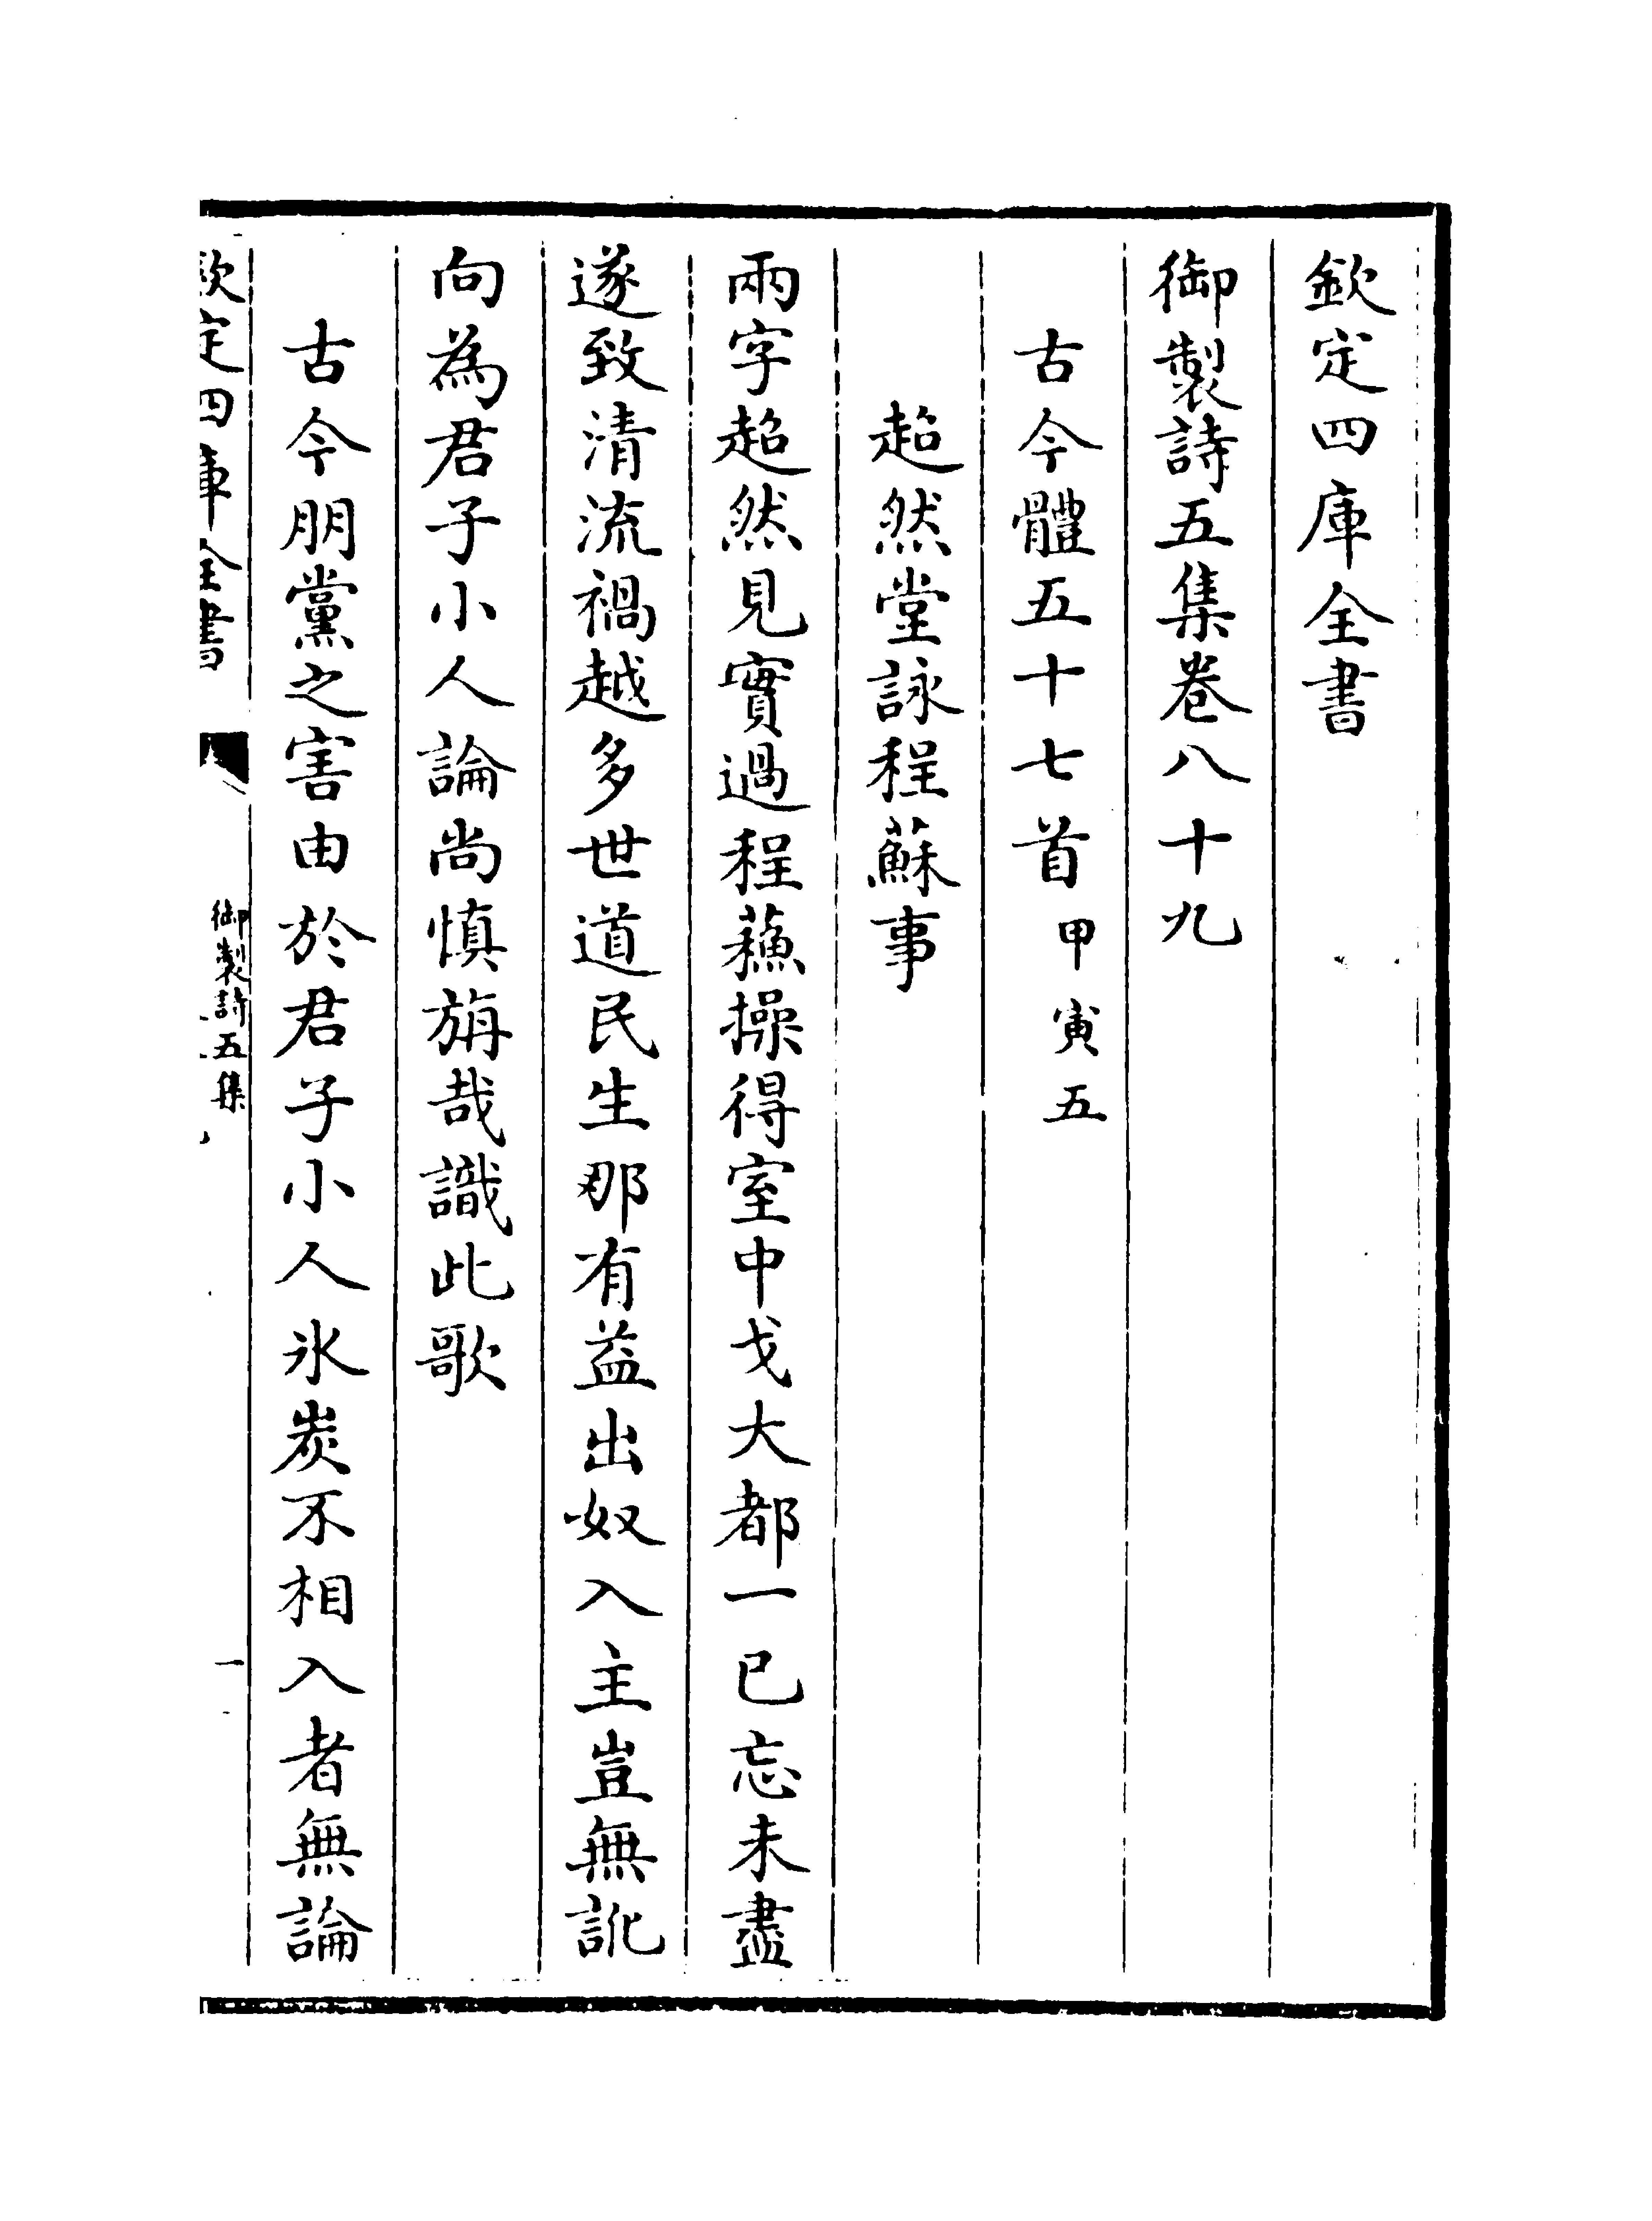 欽定四庫全書
御製詩五集卷八十九
古今體五十七首甲寅五
超然堂詠程蘇事
兩字超然見實過程蘓操得室中戈大都一已忘未盡
遂致清流禍越多世道民生那有益出奴入主豈無訛
向為君子小人論尚慎旃哉識此歌
古今朋黨之害由於君子小人氷炭不相入者無論
欽定四庫全書
御製詩五集
一